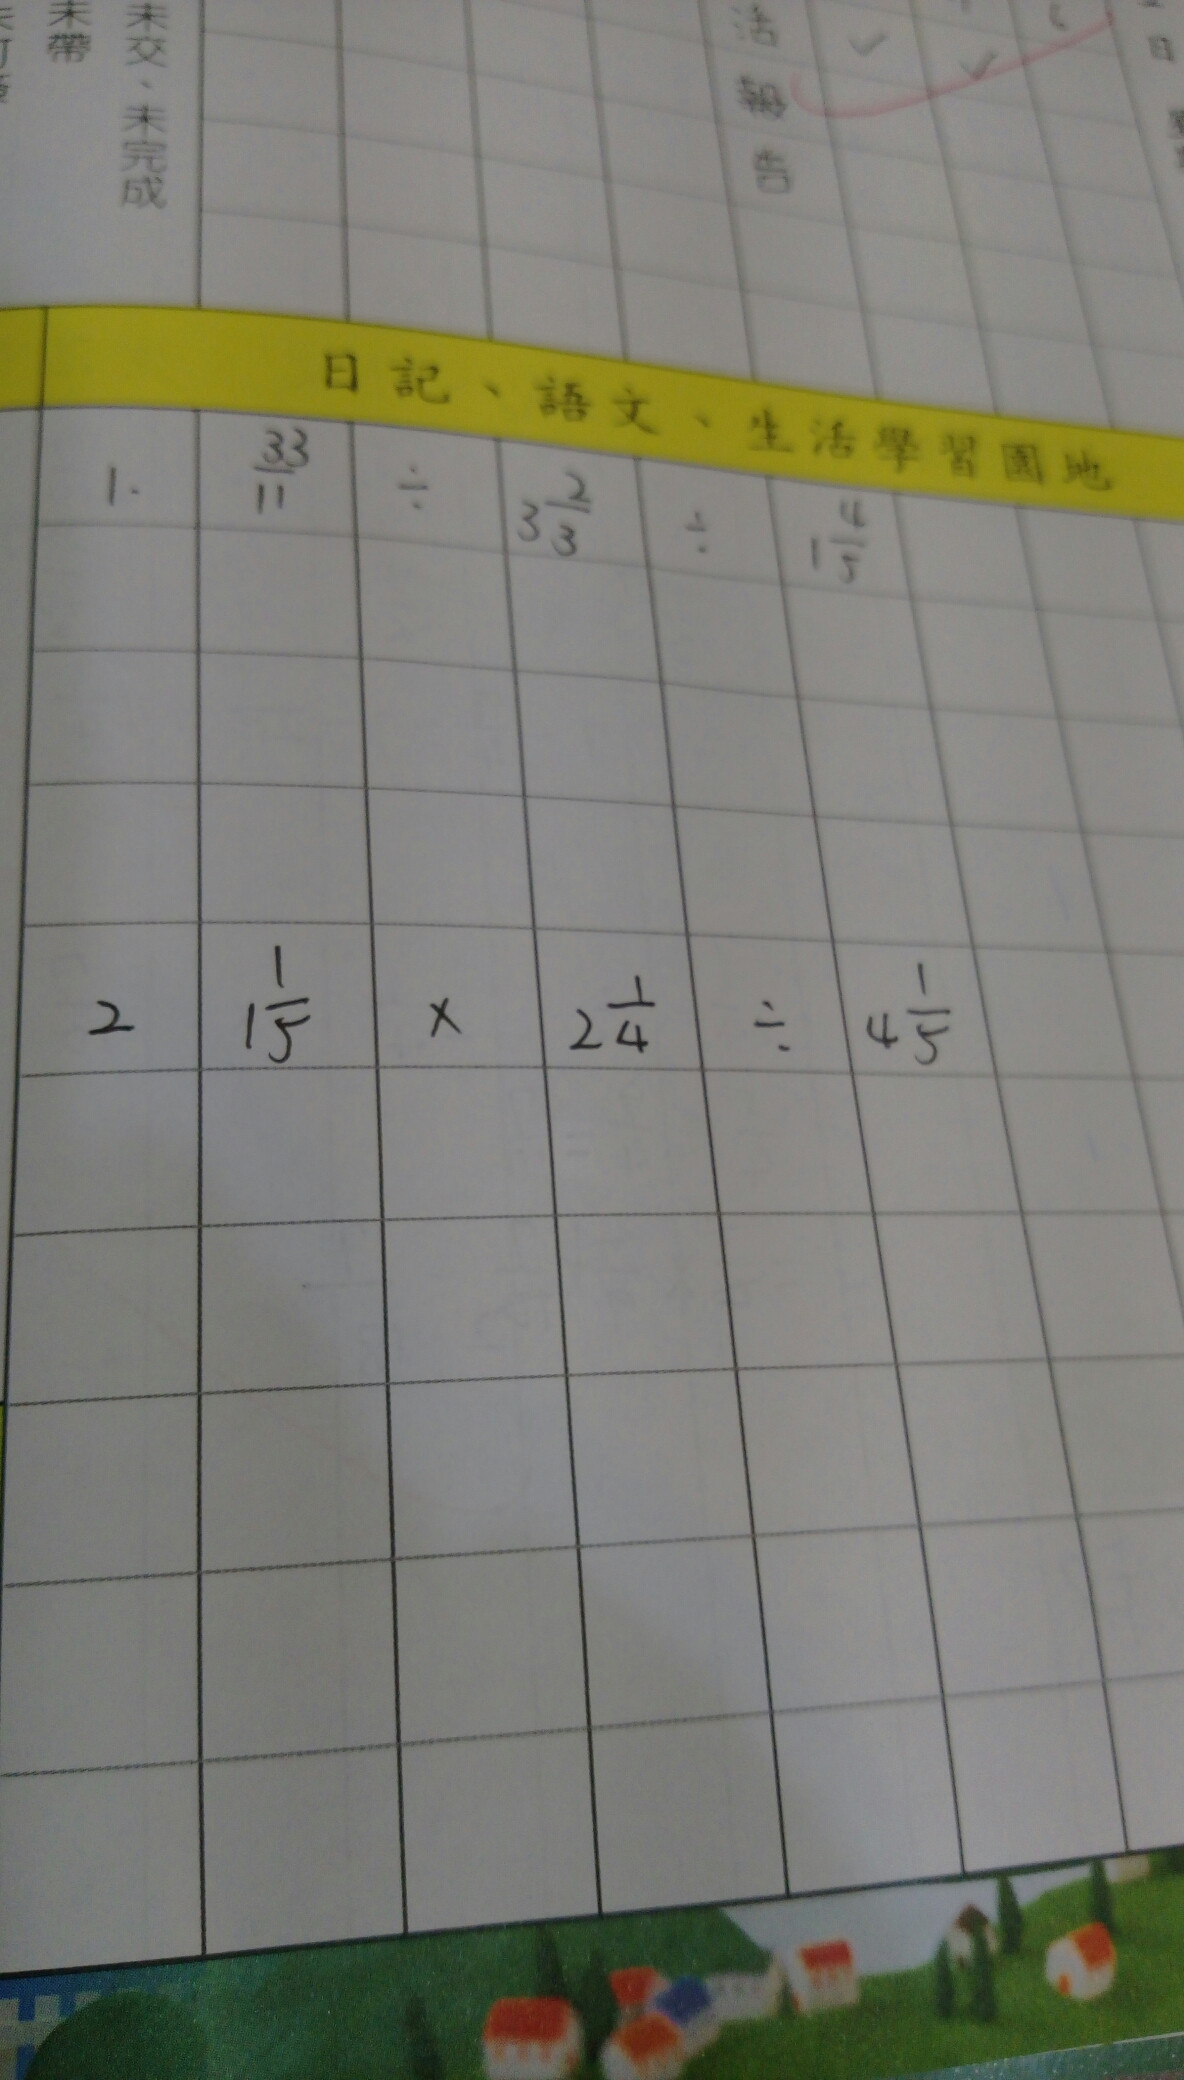 未交、未完成
未帶
活報告
日記、語文、生活學習園地
1. 33/11 ÷ 3 2/3 ÷ 1 4/5
2 1 1/5 × 2 1/4 ÷ 4 1/5